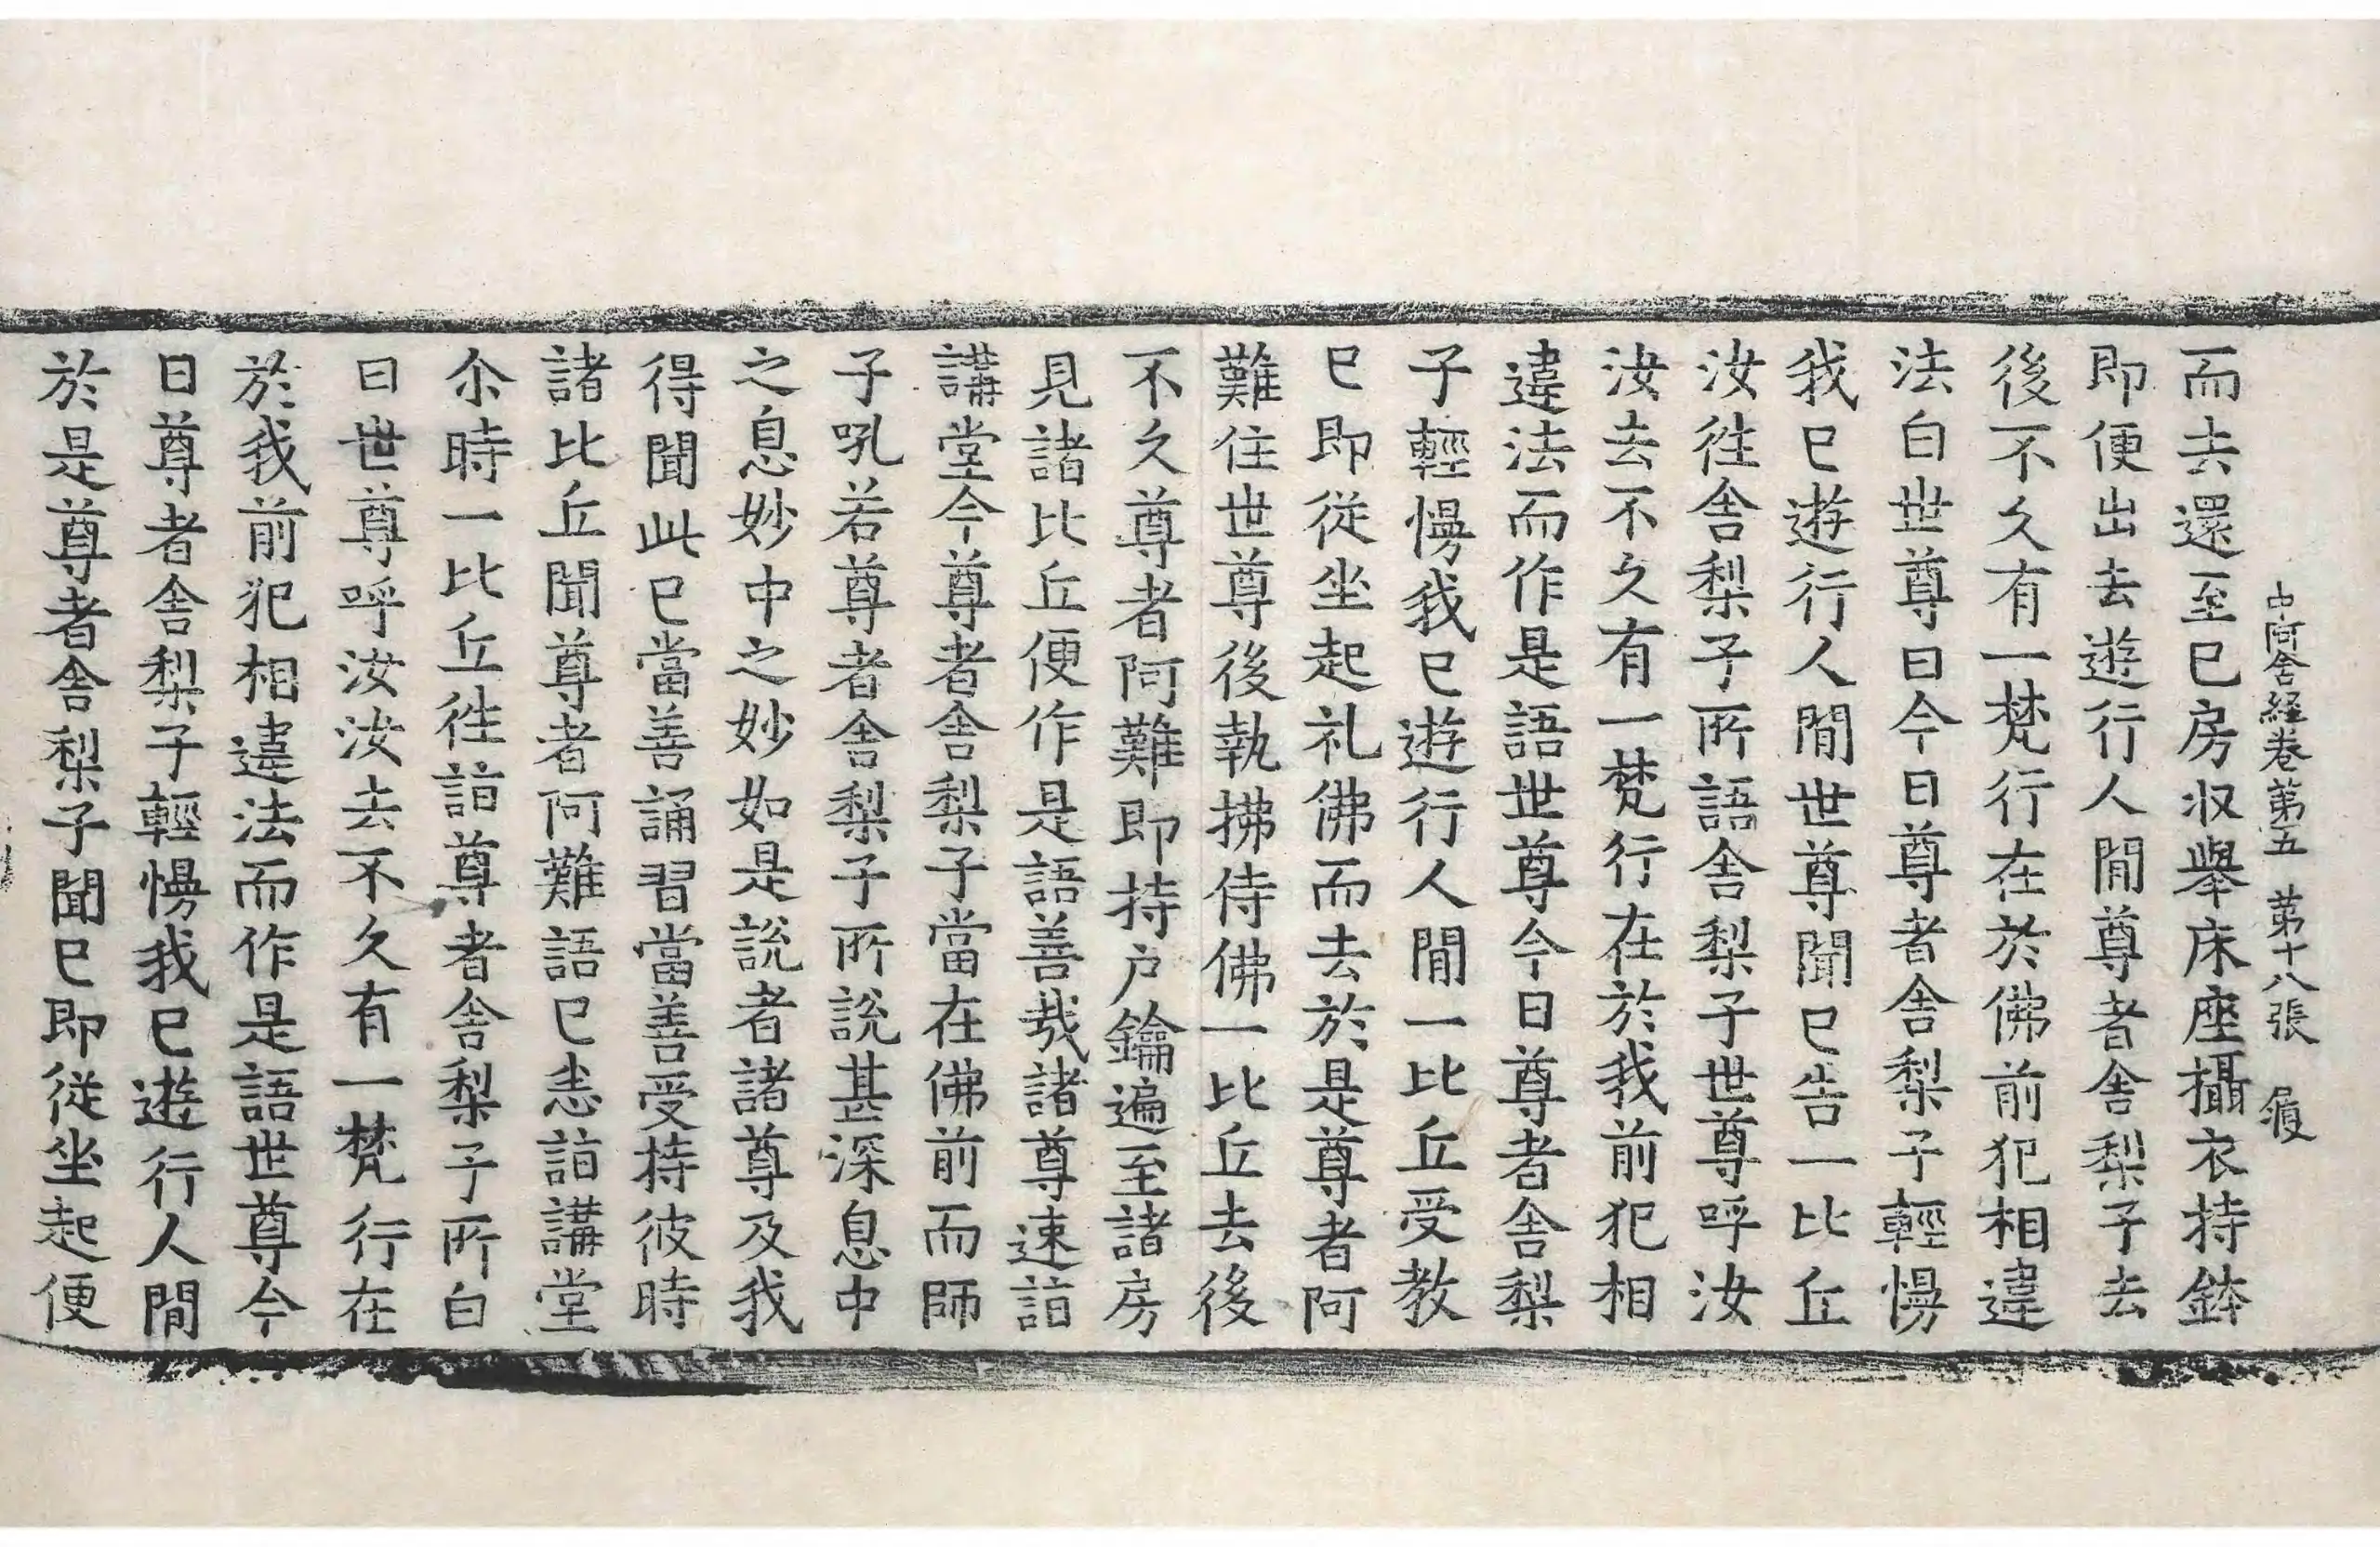 中阿含経卷第五 第十八張 履
而去還至巳房収舉床座攝衣持鉢
即便出去遊行人閒尊者舎梨子去
後不久有一梵行在於佛前犯相違
法白世尊曰今日尊者舎梨子輕慢
我巳遊行人閒世尊聞巳告一比丘
汝徃舎梨子所語舎梨子世尊呼汝
汝去不久有一梵行在於我前犯相
違法而作是語世尊今日尊者舎梨
子輕慢我巳遊行人閒一比丘受教
巳即従坐起礼佛而去於是尊者阿
難住世尊後執拂侍佛一比丘去後
不久尊者阿難即持户鑰遍至諸房
見諸比丘便作是語善哉諸尊速詣
講堂今尊者舎梨子當在佛前而師
子吼若尊者舎梨子所說甚深息中
之息妙中之妙如是說者諸尊及我
得聞此巳當善誦習當善受持彼時
諸比丘聞尊者阿難語巳悉詣講堂
尒時一比丘徃詣尊者舎梨子所白
曰世尊呼汝汝去不久有一梵行在
於我前犯相違法而作是語世尊今
日尊者舎梨子輕慢我巳遊行人閒
於是尊者舎梨子聞巳即從坐起便